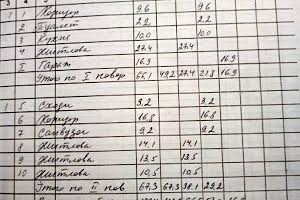 3 4 5
1 1 Коридор 9,6 9,6
2 Туалет 2,2 2,2
3 Кухня 10,0 10,0
4 Жит.пов-а 27,4 27,4
I Гараж 16,9 16,9
Итого по I повер 66,1 49,2 27,4 21,8 16,9
1 5 Сходи 3,2 3,2
6 Коридор 16,8 16,8
7 Санвузол 9,2 9,2
8 14,1 14,1
9 13,5 13,5
10 10,5 10,5
Итого по II пов 67,3 67,3 38,1 29,2